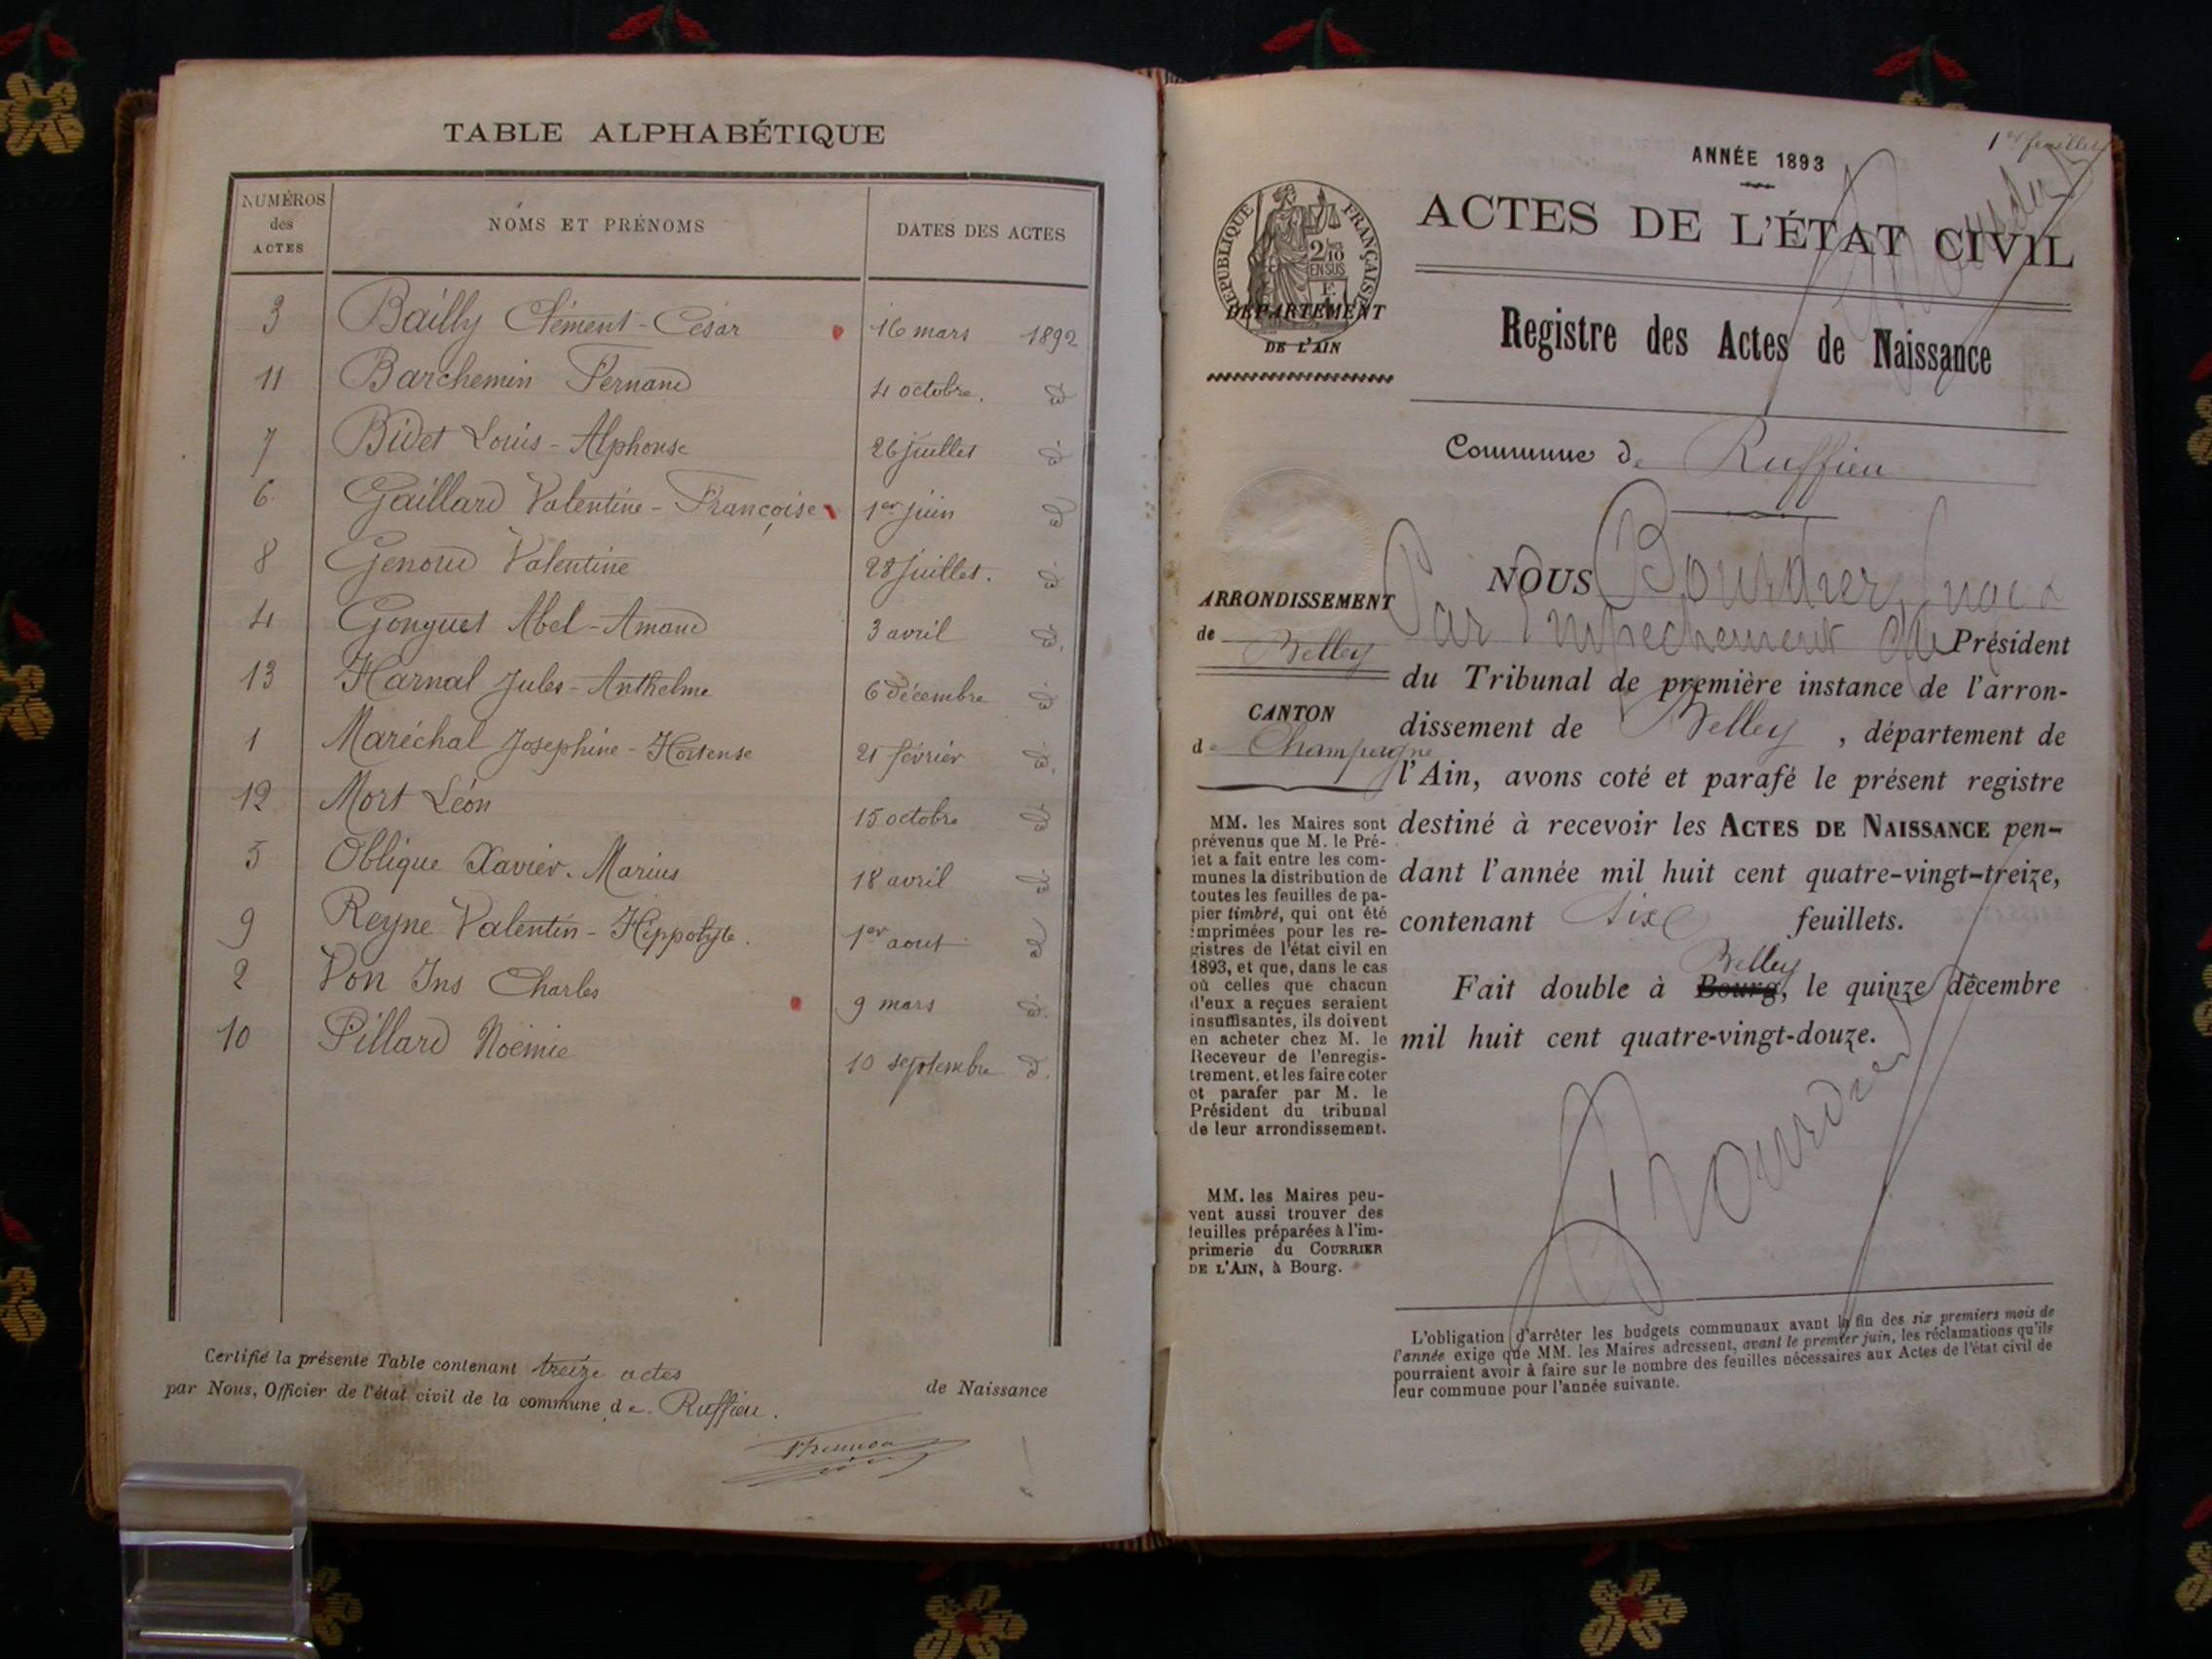 TABLE ALPHABÉTIQUE
NUMÉROS
des
ACTES
NOMS ET PRÉNOMS
DATES DES ACTES
3 Bailly Clément-César 16 mars 1892
11 Barchemin Fernand 4 octobre. d
7 Bidet Louis-Alphonse 26 juillet d
6 Gaillard Valentine-Françoise 1er juin d
8 Genoud Valentine 28 juillet. d
4 Gonguet Abel-Amand 3 avril d.
13 Harnal Jules-Anthelme 6 décembre d.
1 Maréchal Joséphine-Hortense 21 février d.
12 Mort Léon 15 octobre d.
5 Oblique Xavier. Marius 18 avril d.
9 Reyne Valentin-Hippolyte. 1er aout d
2 Von Ins Charles 9 mars d.
10 Pillard Noémie 10 septembre d.
Certifié la présente Table contenant treize actes
de Naissance
par Nous, Officier de l'état civil de la commune de Ruffieu.
1er feuillet
ANNÉE 1893
ACTES DE L'ÉTAT CIVIL
RÉPUBLIQUE FRANÇAISE
2/10
EN SUS
DÉPARTEMENT
DE L'AIN
Registre des Actes de Naissance
Commune de Ruffieu
ARRONDISSEMENT
de Belley
CANTON
de Champagne
MM. les Maires sont
prévenus que M. le Pré-
fet a fait entre les com-
munes la distribution de
toutes les feuilles de pa-
pier timbré, qui ont été
imprimées pour les re-
gistres de l'état civil en
1893, et que, dans le cas
où celles que chacun
d'eux a reçues seraient
insuffisantes, ils doivent
en acheter chez M. le
Receveur de l'enregis-
trement, et les faire coter
et parafer par M. le
Président du tribunal
de leur arrondissement.
MM. les Maires peu-
vent aussi trouver des
feuilles préparées à l'im-
primerie du COURRIER
DE L'AIN, à Bourg.
NOUS Bourdier
Par Empechement du Président
du Tribunal de première instance de l'arron-
dissement de Belley, département de
l'Ain, avons coté et parafé le présent registre
destiné à recevoir les ACTES DE NAISSANCE pen-
dant l'année mil huit cent quatre-vingt-treize,
contenant six feuillets.
Belley
Fait double à Bourg, le quinze décembre
mil huit cent quatre-vingt-douze.
Bourdier
L'obligation d'arrêter les budgets communaux avant la fin des six premiers mois de
l'année exige que MM. les Maires adressent, avant le premier juin, les réclamations qu'ils
pourraient avoir à faire sur le nombre des feuilles nécessaires aux Actes de l'état civil de
leur commune pour l'année suivante.